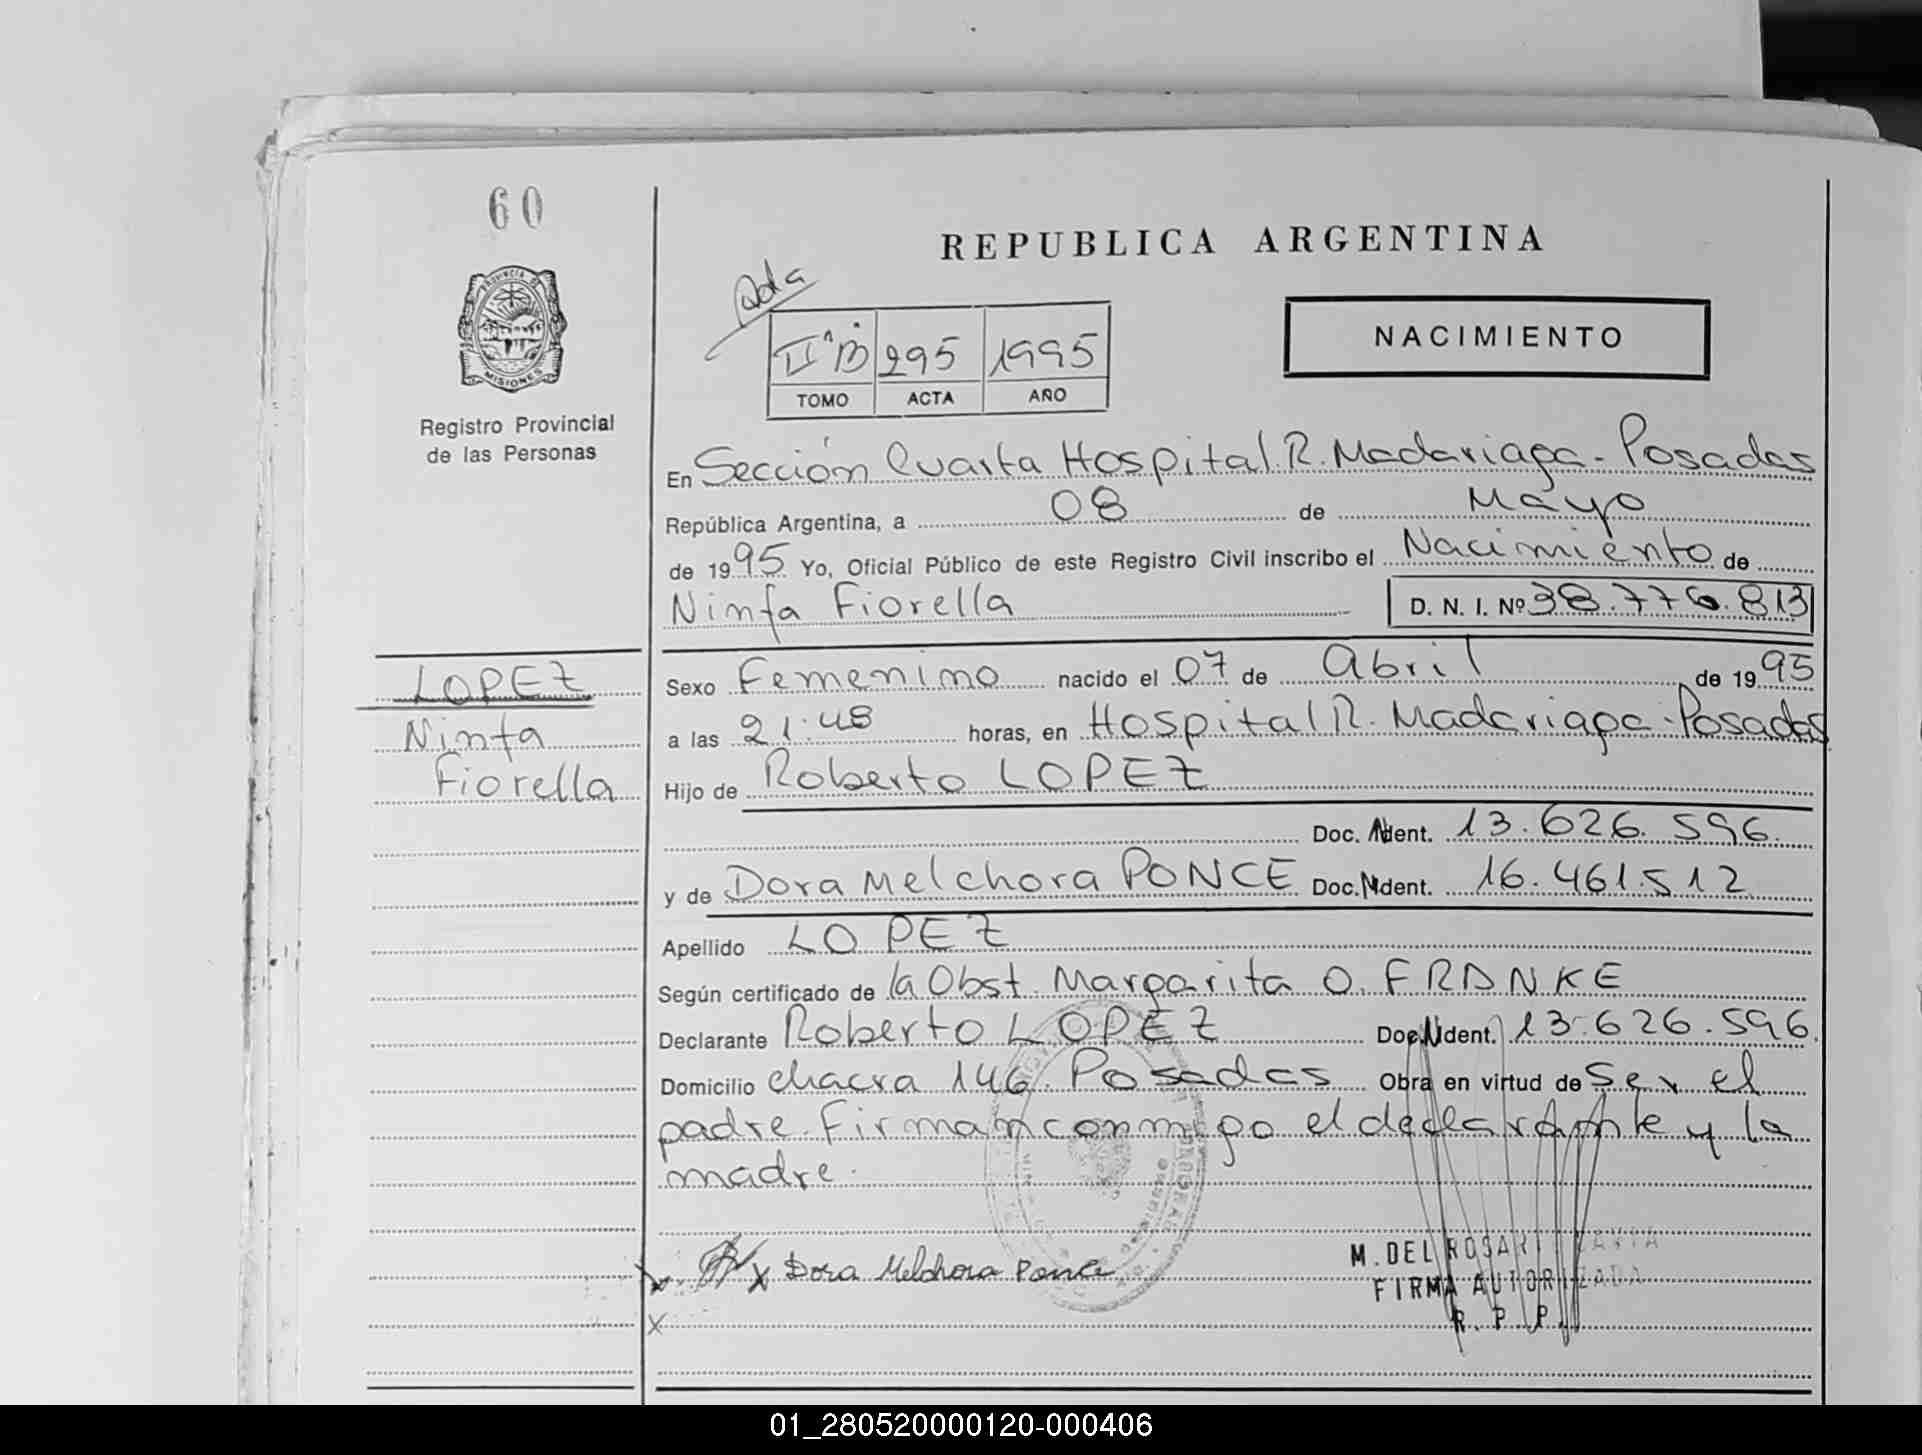 60
PROVINCIA DE
MISIONES
Registro Provincial
de las Personas
REPUBLICA ARGENTINA
NACIMIENTO
IIº B 295 1995
TOMO ACTA AÑO
En Sección Cuarta Hospital R. Madariaga - Posadas
República Argentina, a 08 de Mayo
de 1995 Yo, Oficial Público de este Registro Civil inscribo el Nacimiento de
Ninfa Fiorella D. N. I. Nº 38.776.813
LOPEZ
Ninfa
Fiorella
Sexo Femenino nacido el 07 de Abril de 1995
a las 21:48 horas, en Hospital R. Madariaga - Posadas
Hijo de Roberto LOPEZ
Doc. Ident. 13.626.596.
y de Dora Melchora PONCE Doc. Ident. 16.461.512
Apellido LOPEZ
Según certificado de la Obst. Margarita O. FRANKE
Declarante Roberto LOPEZ Doc. Ident. 13.626.596.
Domicilio chacra 146. Posadas Obra en virtud de Ser el
padre. Firman conmigo el declarante y la
madre.
x Dora Melchora Ponce
M. DEL ROSARI
FIRMA AUTORIZADA
R. P. P.
x
01_280520000120-000406